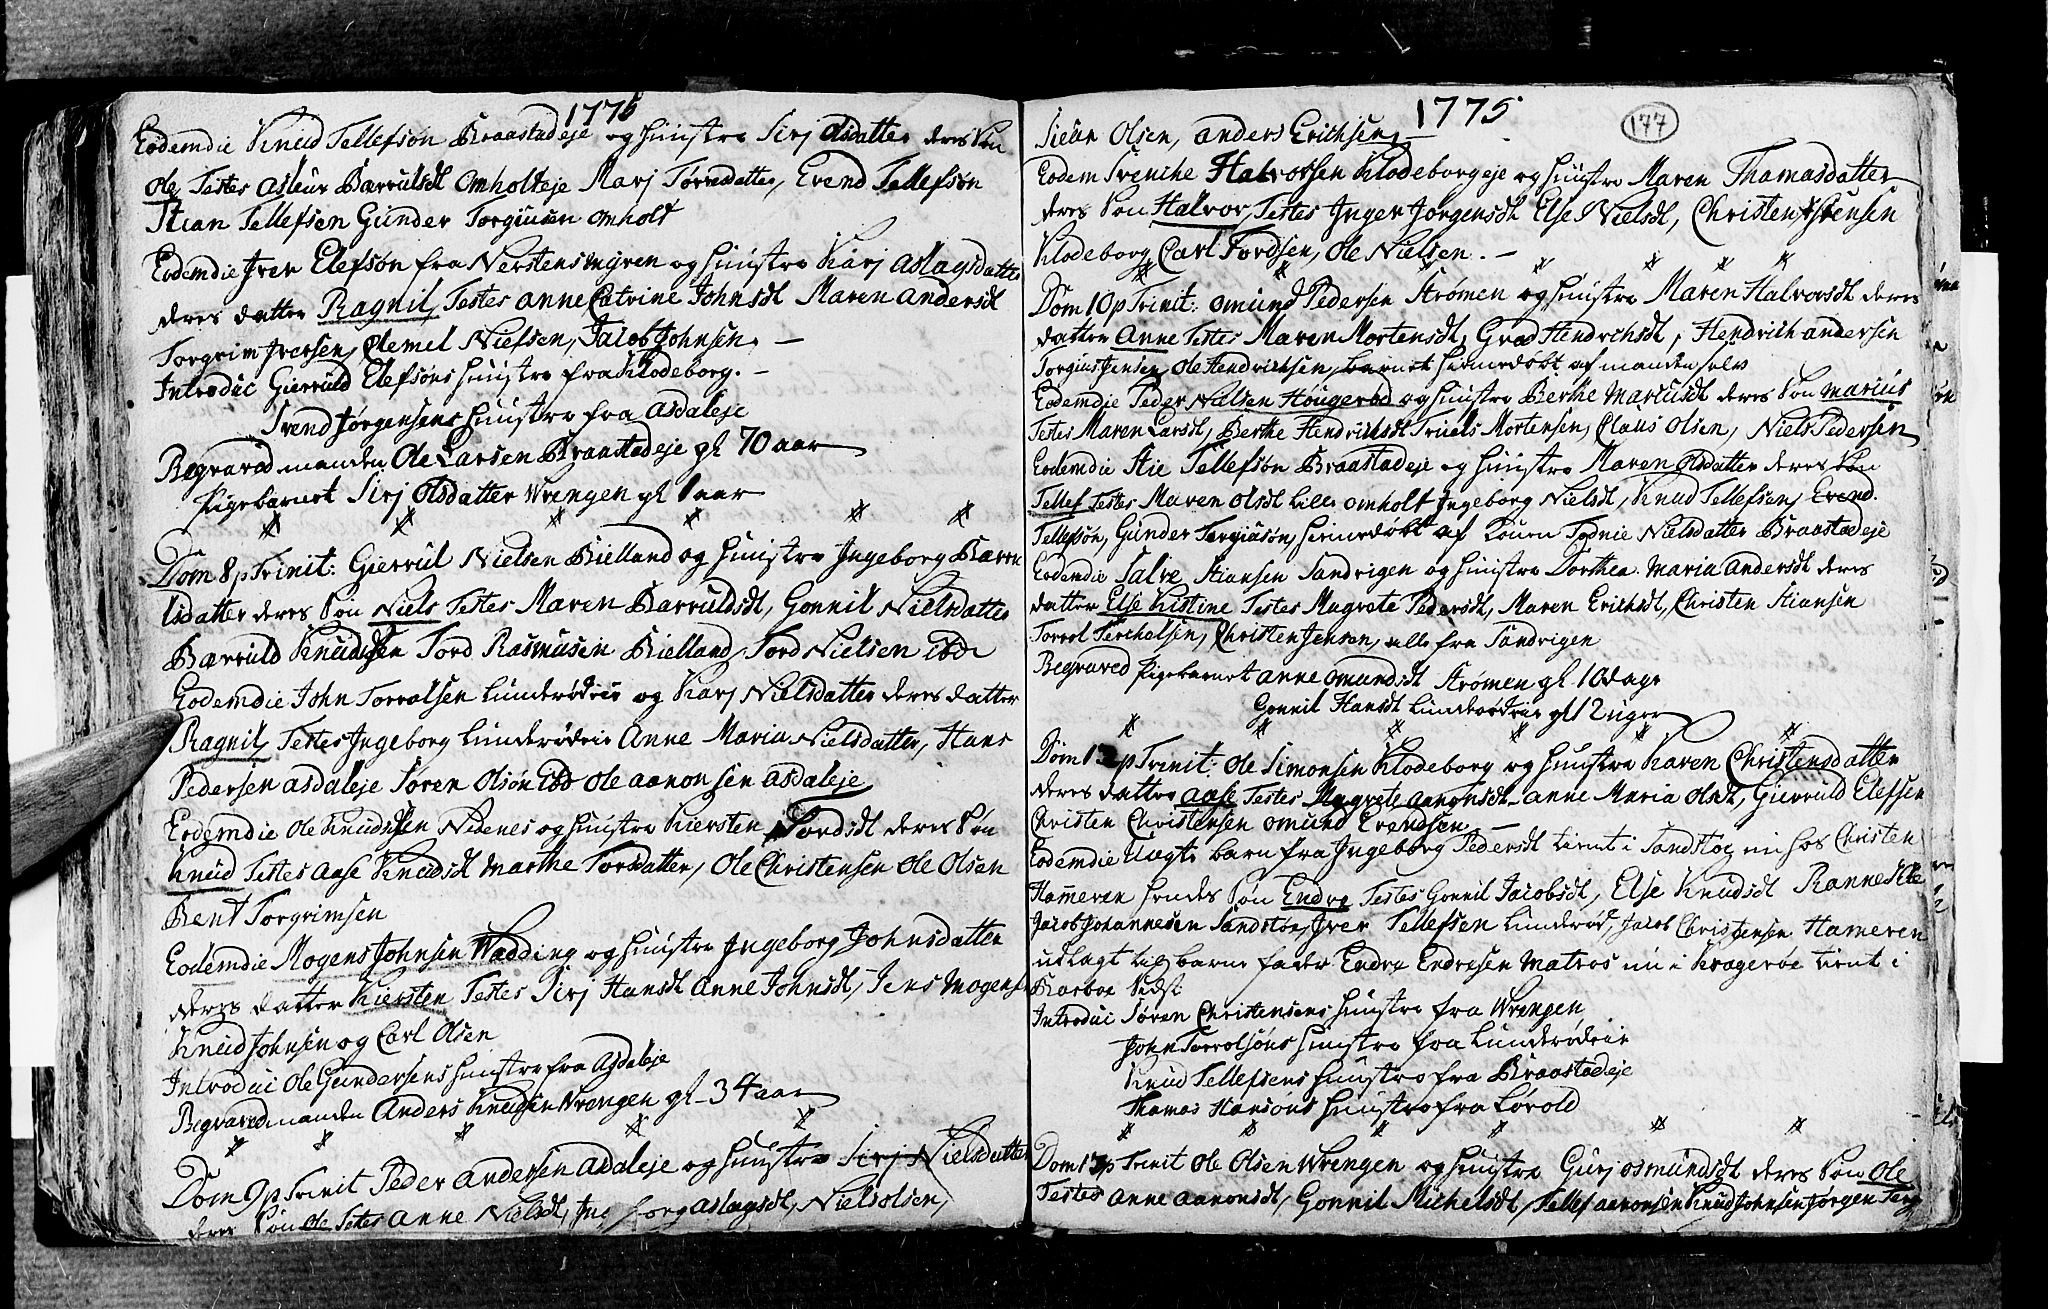 1775
Eodemdie Knud Tellefsøn Braastadeje og Hustro Sirj Olsdatter deres Søn
Ole Testes Asleur Barrulsdt Omholteje Marj Torresdatter, Evend Tellefsøn
Stian Tellefsen Gunder Torgiusen Omholt
Eodemdie Iver Elefsøn fra Nerstensmyren og Hustro Karj Aslagsdatter
deres datter Ragnil, Testes Anne Catrine Johnsdt Maren Andersdt
Torgrim Iversen, Olemel Nielsen, Jacob Johnsen. —
Introduc Gierruld Elefsøns Hustro fra Klodeborg. —
Svend Jørgensens Hustro fra Asdaleje
Begraved manden Ole Larsen Braastadeje gl 70 aar
Pigebarnet Sirj Olsdatter Wrengen gl 1 aar
Dom 8 p Trinit: Gierrul Nielsen Bielland og Hustro Ingeborg Bærru
lsdatter deres Søn Niels Testes Maren Barruldsdt, Gonnil Nielsdatter
Bærruld Knudsen Tord Rasmusen Bielland, Tord Nielsen ibd
Eodemdie John Torrolsen Lunderødeie og Karj Nielsdatter deres datter
Ragnil, Testes Ingeborg Lunderødeie Anne Maria Nielsdatter, Hans
Pedersen Asdaleje Søren Olsøn ibd Ole Aanonsen Asdaleje
Eodemdie Ole Knudsen Nidenes og Hustro Kiersten Tordsdt deres Søn
Knud Testes Aase Knudsdt Marthe Torsdatter, Ole Christensen Ole Olsen
Bent Torgrimsen
Eodemdie Mogens Johnsen Wedding og Hustro Ingeborg Johnsdatter
deres datter Kiersten Testes Sirj Hansdt Anne Johnsdt, Jens Mogens
Knud Johnsen og Carl Olsen
Introduc Ole Gundersens Hustro fra Asdaleje
Begraved manden Anders Knudsen Wrengen gl 34 aar
Dom 9 p Trinit Peder Andersen Asdaleje og Hustro Sirj Nielsdatter
deres Søn Ole Testes Anne Nielsdt, Ingeborg Aslagsdt, Niels Olsen,
1775
177
Olsen, Anders Erichsen
Eodem Svenike Halvorsen Klodeborgeje og Hustro Maren Thomasdatter
deres Søn Halvor, Testes Inger Jorgensdt Else Nielsdt, Christen
Klodeborg Carl Tordsen, Ole Nielsen. —
Dom 10 p Trinit: Omund Pedersen Strømen og Hustro Maren Halvorsdt deres
datter Anne Testes Maren Mortensdt, Groe Hendrichsdt, Hendrich Andersen
Torgius Jensen, Ole Hendrichsen, barnet hiemedøbt af manden selv
Eodemdie Peder Nielsen Hougerød og Hustro Berthe Marcusdt deres Søn Marius
Testes Maren Larsdt, Berthe Hendrichsdt Truels Mortensen, Claus Olsen, Niels Pedersen
Eodemdie Stie Tellefsøn Braastadeje og Hustro Maren Olsdatter deres Søn
Tellef Testes Maren Olsdt lille Omholt Ingeborg Nielsdt, Knud Tellefsen, Evend
Tellefsøn, Gunder Torgiusøn, hiemedøbt af Konen Nielsdatter Braastadeje
Eodemdie Salve Stiansen Sandrigen og Hustro Dorthea Maria Andersdt deres
datter Else Kistine Testes Magrete Pedersdt, Maren Erichsdt, Christen Stiansen
Torrol Terchelsen, Christen Jensen, alle fra Sandrigen
Begraved Pigebarnet Anne Omundsdt Strømen gl 10 dage
Gonnil Hansdt Lunderødeie gl 12 uger
Dom 12 p Trinit: Ole Simonsen Klodeborg og Hustro Karen Christensdatter
deres datter Aase Testes Magrete Aanonsdt Anne Maria Olsdt, Gierruld Elefsen
Christen Christensen Omund Evendsen —
Eodemdie Uægte barn fra Ingeborg Pedersdt tient i Sandstøe nu hos Christen
Hameren hendes Søn Endre Testes Gonnil Jacobsdt, Else Knudsdt
Jacob Johannesen Sandstøe, Iver Tellefsen Lunderød, Jacob Christensen Hameren
udlagt til barne fader Endre Endresen Matros nu i Kragerøe tient i
Barboe Sidst
Introduc Søren Christensens Hustro fra Wrengen
John Torrolsøns Hustro fra Lunderødeie
Knud Tellefsens Hustro fra Braastadeje
Thomas Hansøns Hustro fra Løvold
Dom 13 p Trinit Ole Olsen Wrengen og Hustro Gurj Osmundsdt deres Søn Ole
Testes Anne Aanonsdt, Gonnil Michelsdt, Tellef Aanonsen Knud Johnsen Jørgen